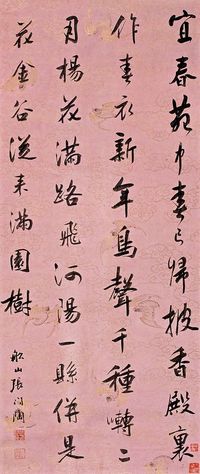 宜春苑中春已歸披香殿裏
作春衣新年鳥聲千種囀二
月楊花滿路飛河陽一縣併是
花金谷從来滿園樹
船山張問陶